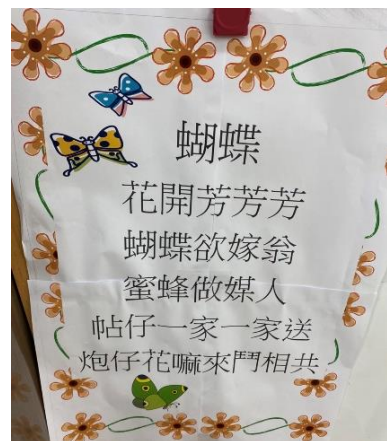 蝴蝶
花開芳芳芳
蝴蝶欲嫁翁
蜜蜂做媒人
帖仔一家一家送
炮仔花嘛來鬥相共